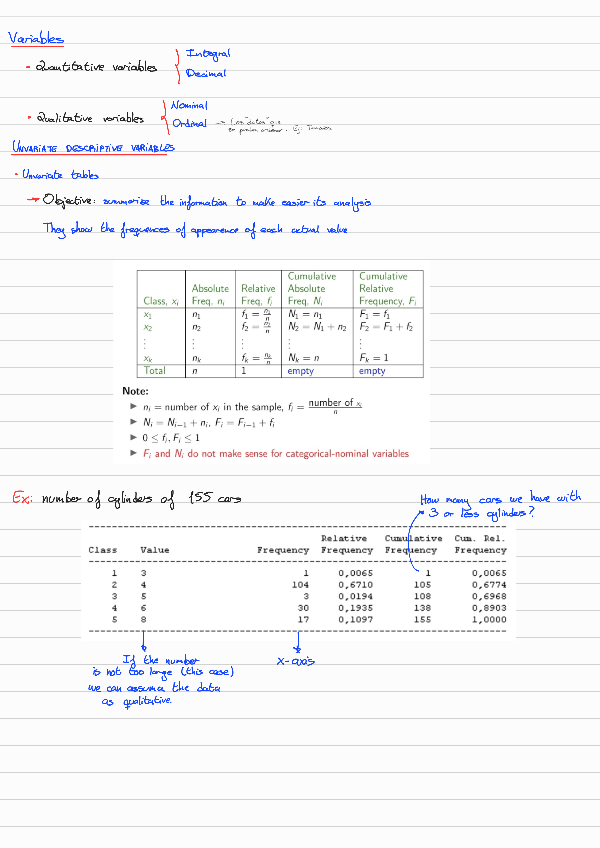 Variables
- Quantitative variables
Integral
Decimal
- Qualitative variables
Nominal
Ordinal
UNIVARIATE DESCRIPTIVE VARIABLES
• Univariate tables
→ Objective: summarise the information to make easier its analysis
They show the frequences of appearence of each actual value
Class, xᵢ | Absolute Freq, nᵢ | Relative Freq, fᵢ | Cumulative Absolute Freq, Nᵢ | Cumulative Relative Frequency, Fᵢ
x₁ n₁ f₁ = n₁/n N₁ = n₁ F₁ = f₁
x₂ n₂ f₂ = n₂/n N₂ = N₁ + n₂ F₂ = F₁ + f₂
⋮ ⋮ ⋮ ⋮ ⋮
xₖ nₖ fₖ = nₖ/n Nₖ = n Fₖ = 1
Total n 1 empty empty
Note:
▶ nᵢ = number of xᵢ in the sample, fᵢ = number of xᵢ/n
▶ Nᵢ = Nᵢ₋₁ + nᵢ, Fᵢ = Fᵢ₋₁ + fᵢ
▶ 0 ≤ fᵢ, Fᵢ ≤ 1
▶ Fᵢ and Nᵢ do not make sense for categorical-nominal variables
Ex: number of cylinders of 155 cars
How many cars we have with
3 or less cylinders?
Relative Cumulative Cum. Rel.
Class Value Frequency Frequency Frequency Frequency
1 3 1 0,0065 1 0,0065
2 4 104 0,6710 105 0,6774
3 5 3 0,0194 108 0,6968
4 6 30 0,1935 138 0,8903
5 8 17 0,1097 155 1,0000
If the number
is not too large (this case)
we can assume the data
as qualitative.
x-axis